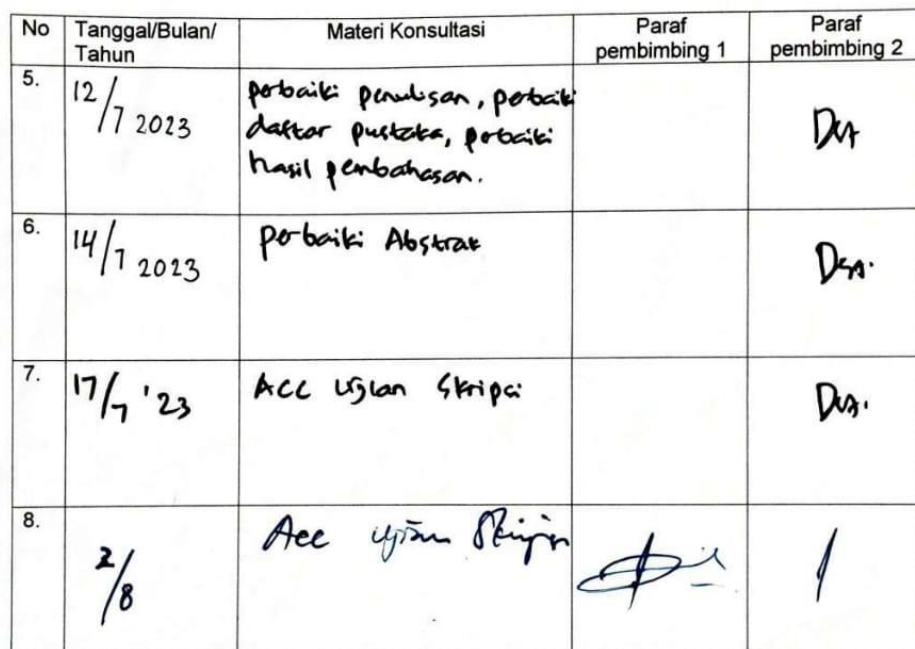 No Tanggal/Bulan/ Materi Konsultasi Paraf Paraf
Tahun pembimbing 1 pembimbing 2
5. 12/7 2023 perbaiki penulisan, perbaiki
daftar pustaka, perbaiki
hasil pembahasan.
6. 14/7 2023 perbaiki Abstrak
7. 17/7 '23 ACC Ujian Skripsi
8. 2/8 Acc ujian Skripsi